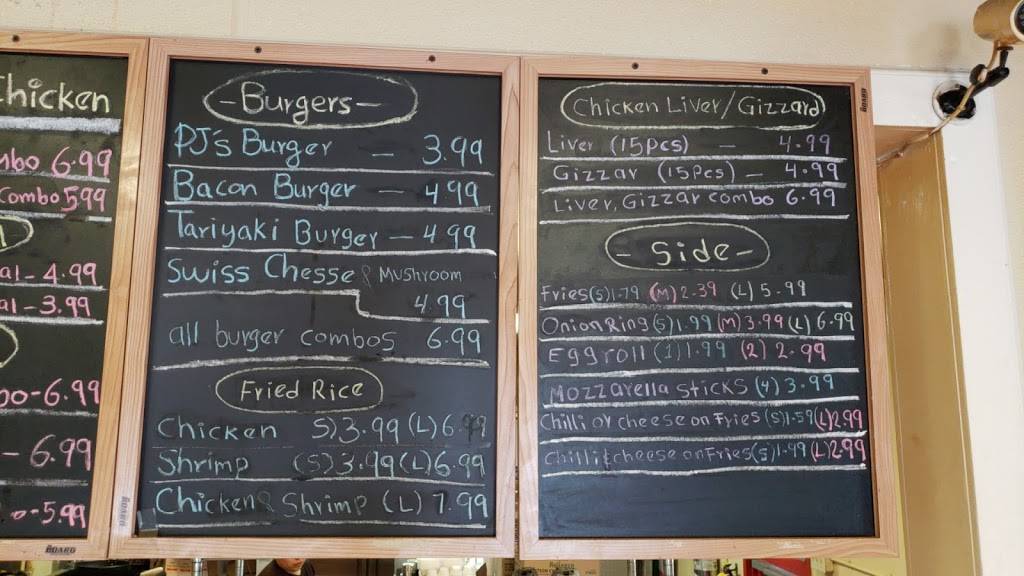 Chicken
6.99
Combo 599
- 4.99
- 3.99
- 6.99
- 6.99
- 5.99
BOARD
- Burgers -
PJ's Burger - 3.99
Bacon Burger - 4.99
Tariyaki Burger - 4.99
Swiss Chesse & Mushroom
4.99
all burger combos 6.99
Fried Rice
Chicken S) 3.99 (L) 6.99
Shrimp (S) 3.99 (L) 6.99
Chicken & Shrimp (L) 7.99
BOARD
Chicken Liver/Gizzard
Liver (15pcs) - 4.99
Gizzar (15Pcs) - 4.99
Liver, Gizzar combo 6.99
- Side -
Fries (S) 1.79 (M) 2.39 (L) 5.99
Onion Ring (S) 1.99 (M) 3.99 (L) 6.99
Egg roll (1) 1.99 (2) 2.99
Mozzarella sticks (4) 3.99
Chilli or cheese on Fries (S) 1.59 (L) 2.99
Chilli & cheese on Fries (S) 1.99 (L) 2.99
BOARD